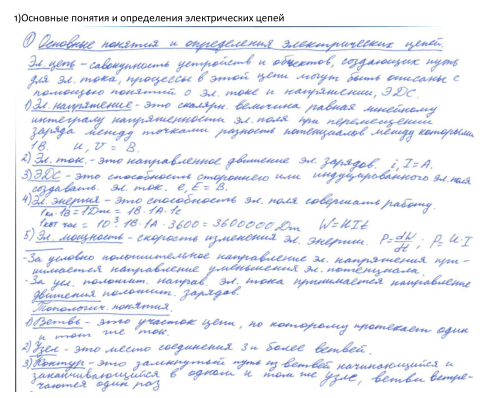 1)Основные понятия и определения электрических цепей
① Основные понятия и определения электрических цепей.
Эл. цепь - совокупность устройств и объектов, создающих путь
для эл. тока, процессы в этой цепи могут быть описаны с
помощью понятий о эл. токе и напряжении, ЭДС.
1) Эл. напряжение - это скалярн. величина равная линейному
интегралу напряженности эл. поля при перемещении
заряда между точками разность потенциалов между которыми
1В. u, U = В.
2) Эл. ток - это направленное движение эл. зарядов. i, I = А.
3) ЭДС - это способность стороннего или индуцированного эл. поля
создавать эл. ток. e, E = В.
4) Эл. энергия - это способность эл. поля совершать работу.
1кл·1В = 1Дж = 1В·1А·1с
1квт час = 10³·1В·1А·3600 = 3600000 Дж W = UIt
5) Эл. мощность - скорость изменения эл. энергии. P = dW/dt; P = U·I
- За условно положительное направление эл. напряжения при-
нимается направление уменьшения эл. потенциала.
- За усл. положит. направ. эл. тока принимается направление
движения положит. зарядов.
Топологич. понятия.
1) Ветвь - это участок цепи, по которому протекает один
и тот же ток.
2) Узел - это место соединения 3 и более ветвей.
3) Контур - это замкнутый путь из ветвей начинающийся и
заканчивающийся в одном и том же узле, ветви встре-
чаются один раз